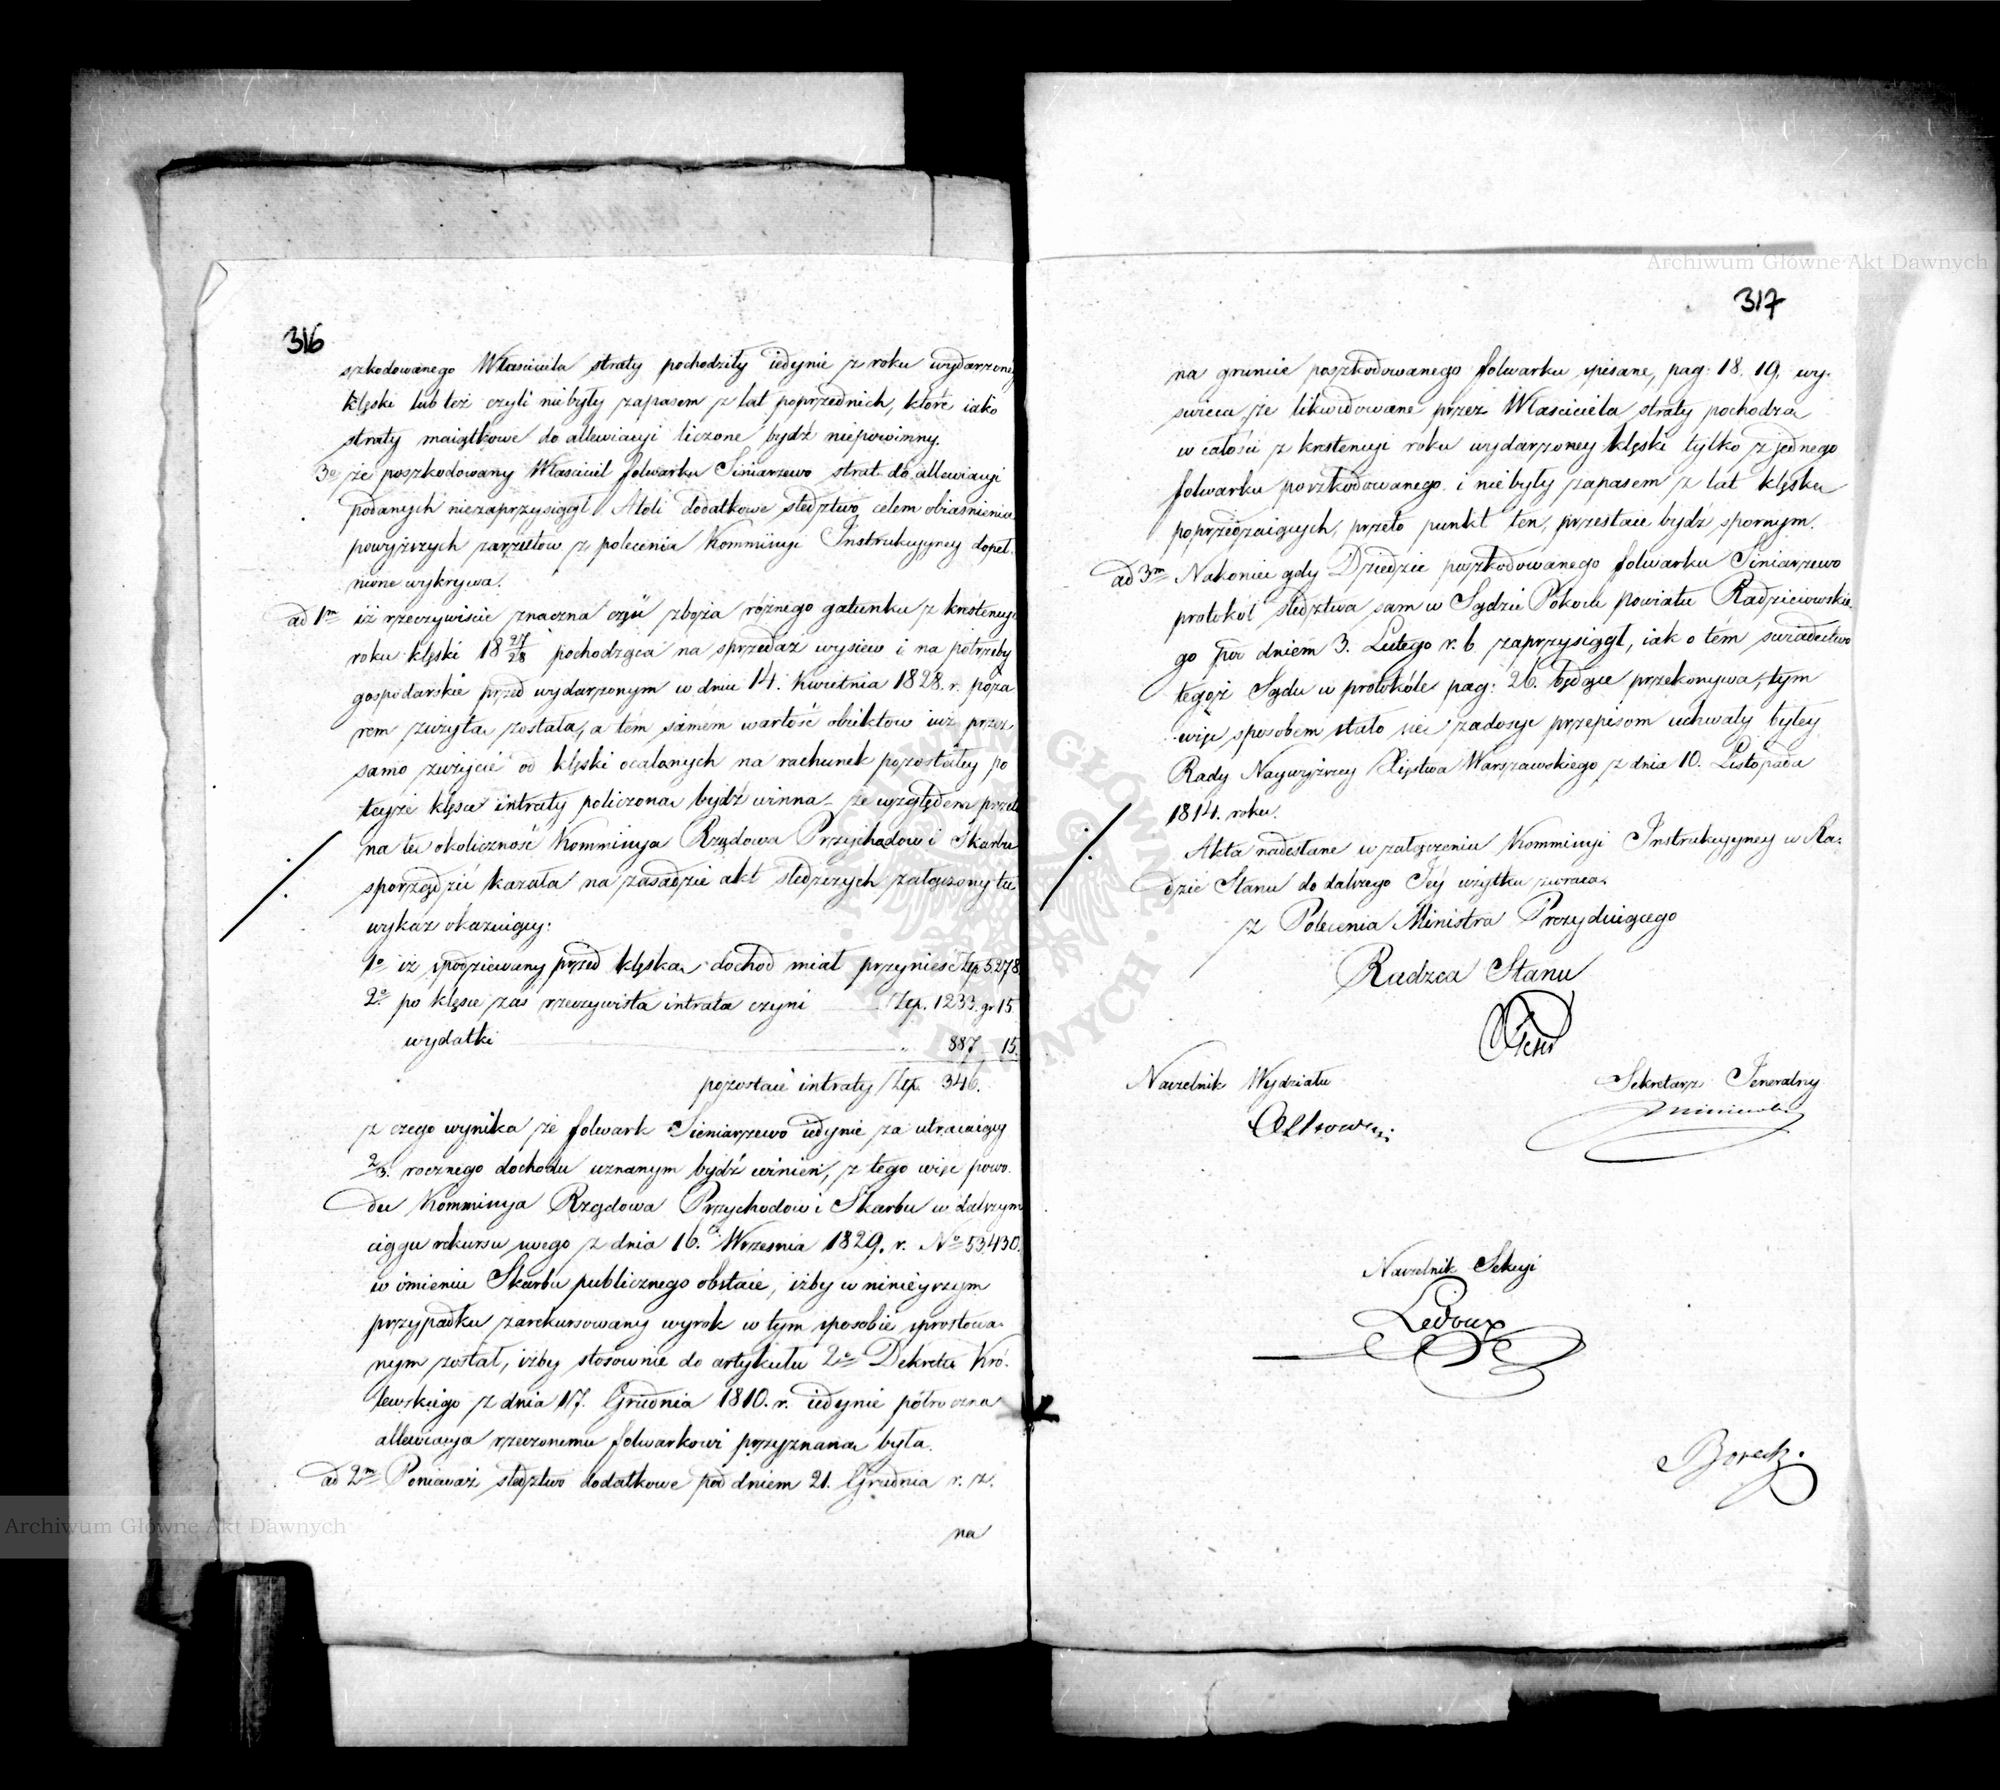 316
szkodowanego Własciciela straty pochodziły iedynie z roku wydarzoney
klęski lub też czyli niebyły zapasem z lat poprzednich, które iako
straty maiątkowe do allewiacyi liczone bydź niepowinny.
3o że poszkodowany Własciciel folwarku Siniarzewo strat do allewiacyi
podanych niezaprzysiągł. Atoli dodatkowe sledztwo celem obiasnienia
powyższych zarzutow z polecenia Kommissyi Instrukcyiney dopeł-
nione wykrywa.
ad 1m iż rzeczywiscie znaczna część zboża różnego gatunku z krestencyi
roku klęski 18 27/28 pochodząca na sprzedaż wysiew i na potrzeby
gospodarskie przed wydarzonym w dniu 14. Kwietnia 1828. r. poża
rem zużyta została, a tém samém wartość obiektow iuż przez
samo zużycie od klęski ocalonych na rachunek pozostałey po
teyże klęsce intraty policzona bydź winna – że względem przeto
na te okoliczność Kommissya Rządowa Przychodow i Skarbu
sporządzić kazała na zasadzie akt sledczych załączony tu
wykaz okazuiący:
1o iż spodziewany przed klęską dochod miał przynieść Złp 5278.
2o po klęsce zas rzeczywista intrata czyni Złp. 1233. gr 15
wydatki „ 887 „ 15.
pozostaie intraty Złp. 346.
z czego wynika że folwark Sieniarzewo iedynie za utracaiący
2/3. rocznego dochodu uznanym bydź winien, z tego więc powo
du Kommissya Rządowa Przychodow i Skarbu w dalszym
ciągu rekursu swego z dnia 16. Wrzesnia 1829. r. No 53430.
w imieniu Skarbu publicznego obstaie, iżby w ninieyszym
przypadku zarekursowany wyrok w tym sposobie sprostowa-
nym został, iżby stosownie do artykułu 2o Dekretu Kró-
lewskiego z dnia 17. Grudnia 1810. r. iedynie półroczna
allewiacya rzeczonemu folwarkowi przyznana była.
ad 2m Ponieważ sledztwo dodatkowe pod dniem 21. Grudnia r. z.
na
317
na gruncie poszkodowanego folwarku spisane, pag: 18. 19. wy-
swieca że likwidowane przez Własciciela straty pochodzą
w całości z krestencyi roku wydarzoney klęski tylko z jednego
folwarku poszkodowanego i niebyły zapasem z lat klęskę
poprzedzaiących, przeto punkt ten, przestaie bydź spornym.
ad 3m Nakoniec gdy Dziedzic poszkodowanego folwarku Siniarzewo
protokół sledztwa sam w Sądzie Pokoiu powiatu Radzieiowskie-
go pod dniem 3. Lutego r. b. zaprzysiągł, iak o tém swiadectwo
tegoż Sądu w protokóle pag: 26. będące przekonywa, tym
więc sposobem stało się zadosyć przepisom uchwały byłey
Rady Naywyższey Xięstwa Warszawskiego z dnia 10. Listopada
1814. roku.
Akta nadesłane w załączeniu Kommissyi Instrukcyiney w Ra-
dzie Stanu do dalszego Jéy użytku zwraca.
z Polecenia Ministra Prezyduiącego
Radzca Stanu
Naczelnik Wydziału
Sekretarz Jeneralny
Naczelnik Sekcyi
Ledoux
Archiwum Główne Akt Dawnych
Archiwum Główne Akt Dawnych